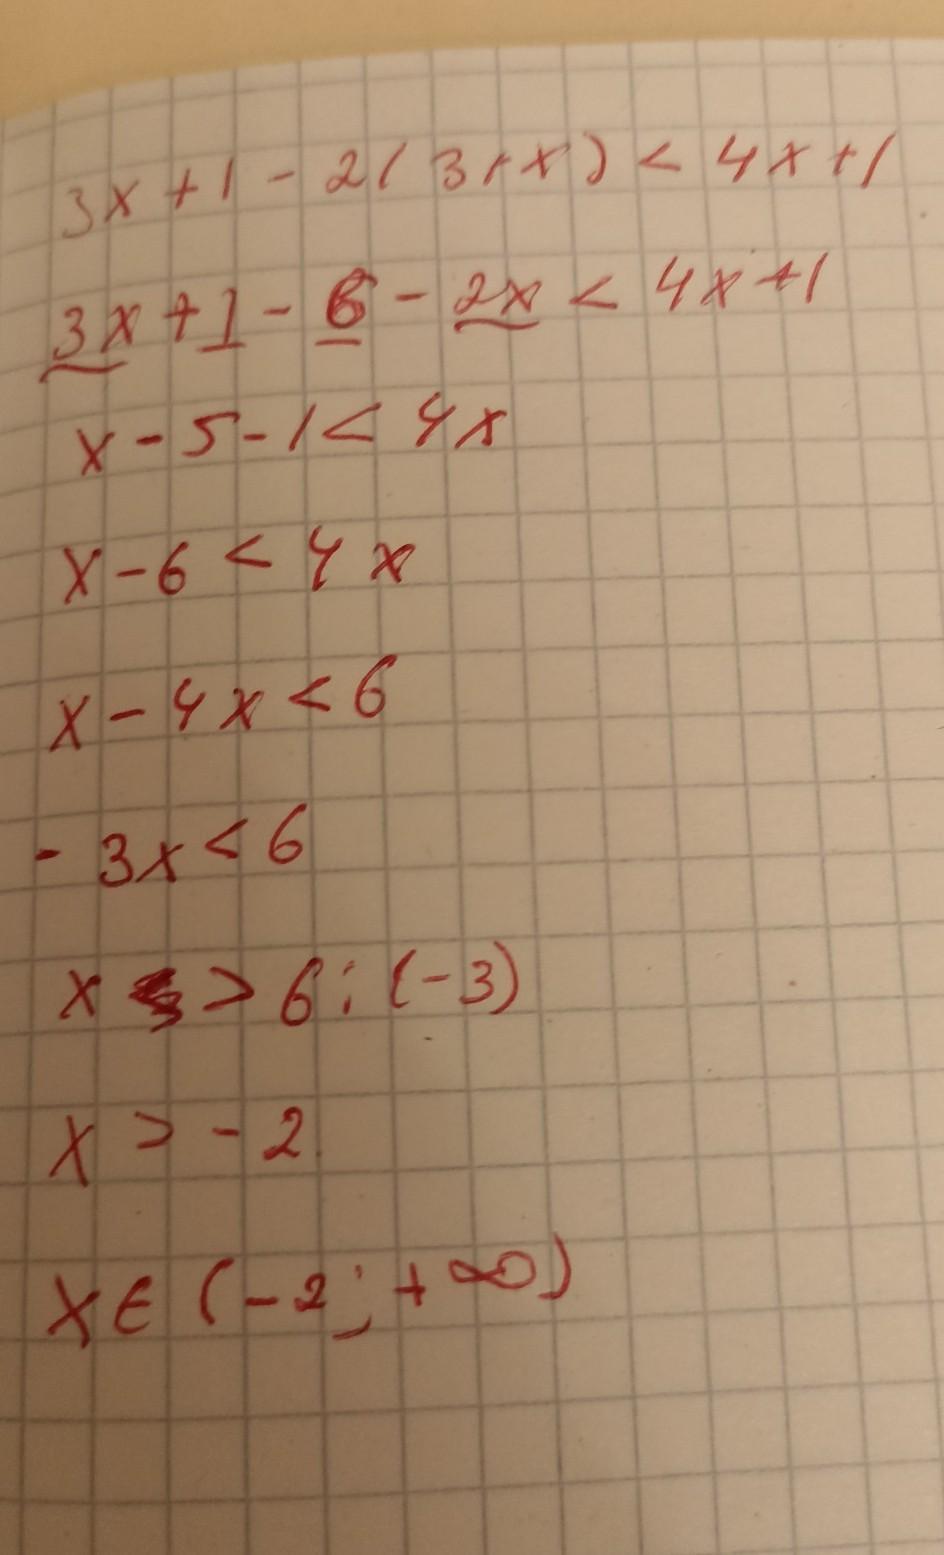 3x + 1 - 2(3+x) < 4x + 1
3x + 1 - 6 - 2x < 4x + 1
x - 5 - 1 < 4x
x - 6 < 4x
x - 4x < 6
- 3x < 6
x > 6 : (-3)
x > - 2
x ∈ (-2; +∞)